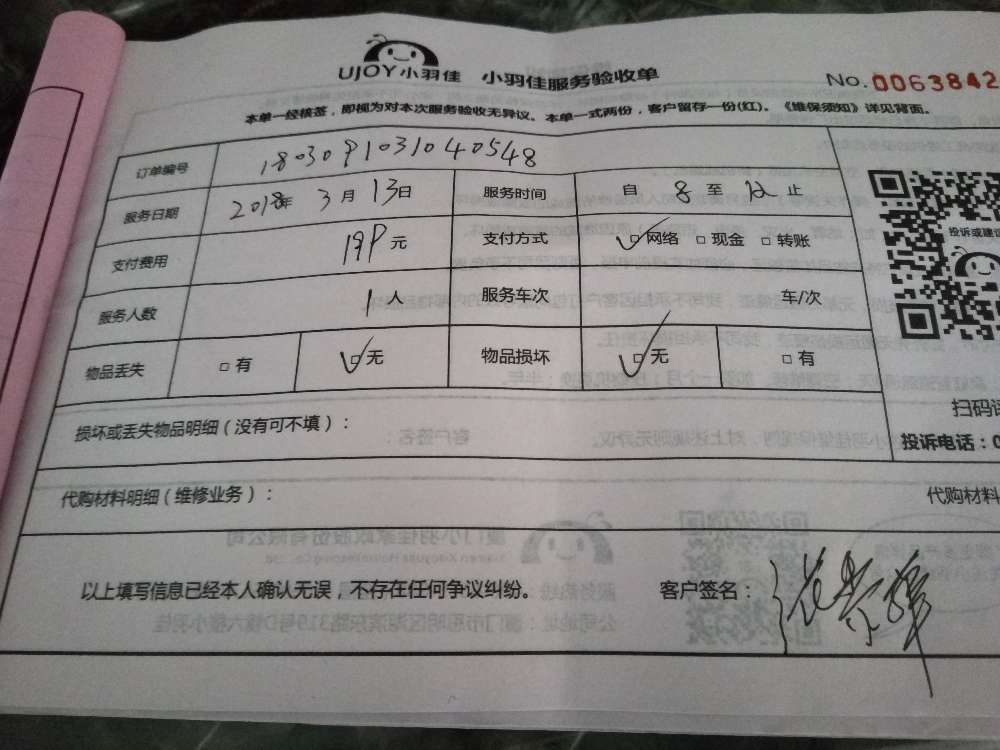 UJOY小羽佳 小羽佳服务验收单
No. 0063842
本单一经核签，即视为对本次服务验收无异议。本单一式两份，客户留存一份(红)。《维保须知》详见背面。
订单编号 1803091031040548
服务日期 2018年 3月13日 服务时间 自 8 至 12 止
投诉或建议
支付费用 199元 支付方式 ☑网络 □现金 □转账
服务人数 1人 服务车次 车/次
物品丢失 □有 ☑无 物品损坏 ☑无 □有
扫码
损坏或丢失物品明细（没有可不填）：
投诉电话：0
代购材料明细（维修业务）： 代购材料
以上填写信息已经本人确认无误，不存在任何争议纠纷。 客户签名：